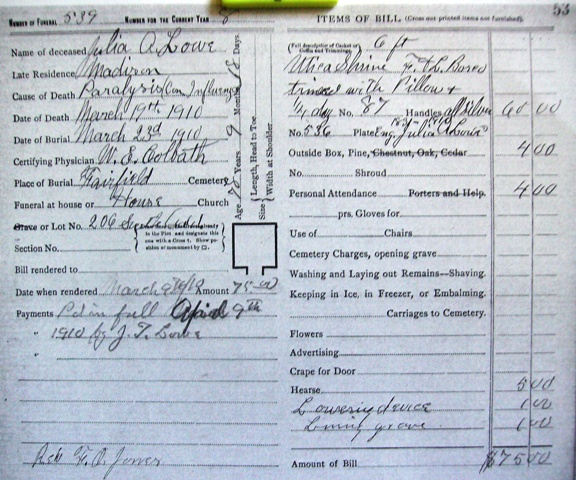 NUMBER OF FUNERAL 539 NUMBER FOR THE CURRENT YEAR 8
Name of deceased Julia A. Lowe
Late Residence, Madison
Cause of Death Paralysis Con. Influenza
Date of Death March 19th 1910
Date of Burial March 23d 1910
Certifying Physician, W. E. Colbath
Place of Burial, Fairfield Cemetery
Funeral at house or House Church
Grave or Lot No. 206
Section No.
Bill rendered to
Date when rendered March Amount 75.00
Payments Pd in full April 9th
" 1910 by J. F. Lowe
"
Rev. F. A. Jones
Age, 70 Years 9 Months 18 Days.
Size { Length, Head to Toe
Width at Shoulder
ITEMS OF BILL (Cross out printed items not furnished). 53
(Full description of Casket or Coffin and Trimmings) 6 ft
Utica Shrine F. & L. Board
trimed with Pillow &
No. 87 Handles, all Silver 60 00
No. 536 Plate, Eng. Julia A. Lowe
Outside Box, Pine, Chestnut, Oak, Cedar 4 00
No. Shroud
Personal Attendance Porters and Help. 4 00
prs. Gloves for
Use of Chairs
Cemetery Charges, opening grave
Washing and Laying out Remains—Shaving.
Keeping in Ice, in Freezer, or Embalming.
Carriages to Cemetery.
Flowers
Advertising
Crape for Door
Hearse 5 00
Lowering device 1 00
Lining grave 1 00
Amount of Bill $75 00